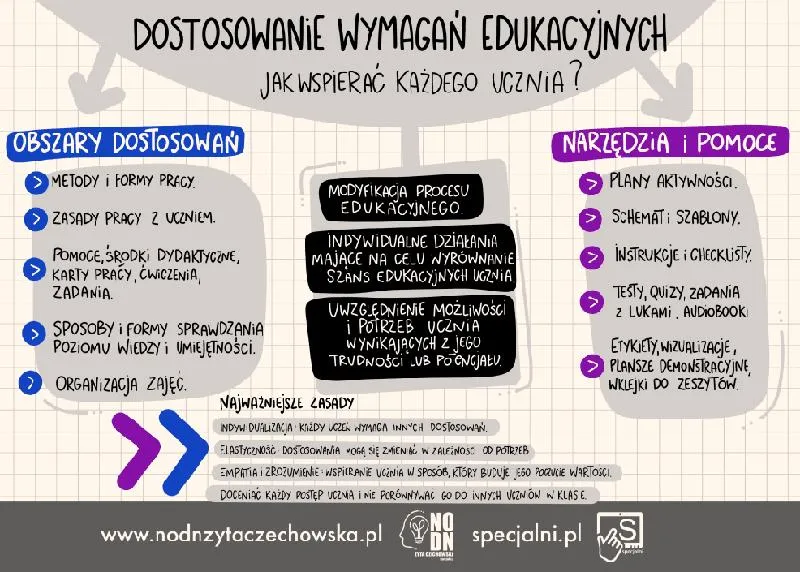 DOSTOSOWANIE WYMAGAŃ EDUKACYJNYCH
JAK WSPIERAĆ KAŻDEGO UCZNIA?
OBSZARY DOSTOSOWAŃ
METODY I FORMY PRACY.
ZASADY PRACY Z UCZNIEM.
POMOCE, ŚRODKI DYDAKTYCZNE,
KARTY PRACY, ĆWICZENIA,
ZADANIA.
SPOSOBY I FORMY SPRAWDZANIA
POZIOMU WIEDZY I UMIEJĘTNOŚCI.
ORGANIZACJA ZAJĘĆ.
MODYFIKACJA PROCESU
EDUKACYJNEGO.
INDYWIDUALNE DZIAŁANIA
MAJĄCE NA CELU WYRÓWNANIE
SZANS EDUKACYJNYCH UCZNIA
UWZGLĘDNIENIE MOŻLIWOŚCI
I POTRZEB UCZNIA
WYNIKAJĄCYCH Z JEGO
TRUDNOŚCI LUB POTENCJAŁU.
NARZĘDZIA I POMOCE
PLANY AKTYWNOŚCI.
SCHEMATI SZABLONY.
INSTRUKCJE I CHECKLISTY.
TESTY, QUIZY, ZADANIA
Z LUKAMI, AUDIOBOOKI
ETYKIETY, WIZUALIZACJE,
PLANSZE DEMONSTRACYJNE,
WKLEJKI DO ZESZYTÓW.
NAJWAŻNIEJSZE ZASADY
INDYWIDUALIZACJA: KAŻDY UCZEŃ WYMAGA INNYCH DOSTOSOWAŃ.
ELASTYCZNOŚĆ: DOSTOSOWANIA MOGĄ SIĘ ZMIENIAĆ W ZALEŻNOŚĆ OD POTRZEB
EMPATIA I ZROZUMIENIE: WSPIERANIE UCZNIA W SPOSÓB, KTÓRY BUDUJE JEGO POCZUCIE WARTOŚCI.
DOCENIAĆ KAŻDY POSTĘP UCZNIA I NIE PORÓWNYWAĆ GO DO INNYCH UCZNIÓW W KLASE.
www.nodnzytaczechowska.pl
NO
DN
specjalni.pl
S
specjalni